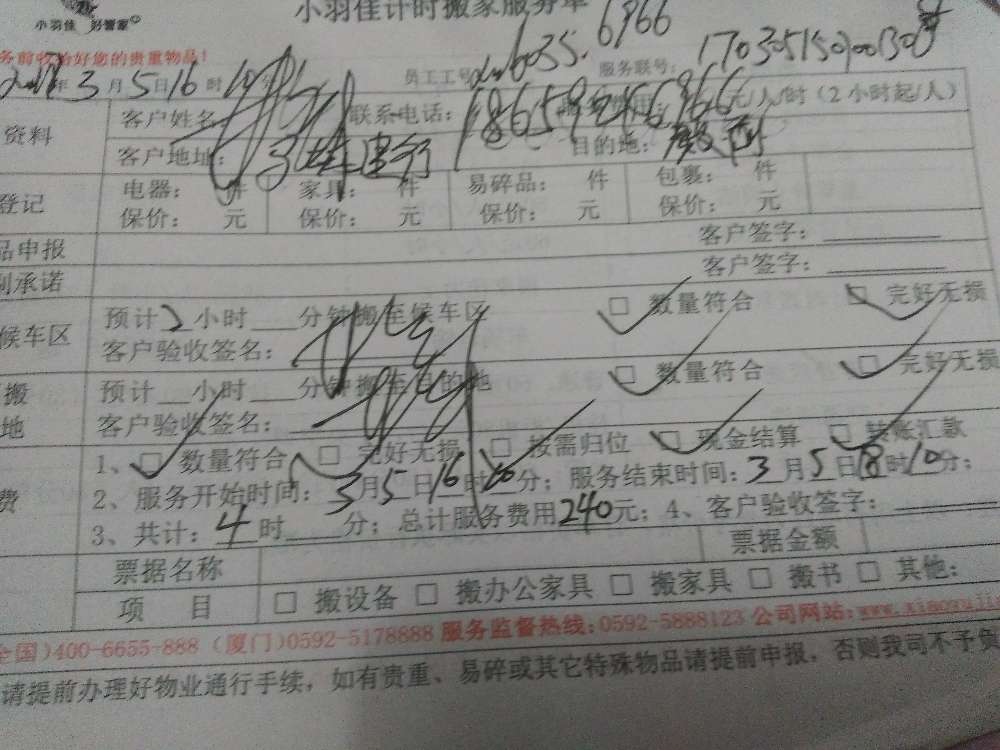 小羽佳 好管家
小羽佳计时搬家服务单
务前收拾好您的贵重物品!
员工工号: 6035. 6966 服务联号: 
年3月5日16时10
资料 客户姓名: 联系电话: 元/人/时(2小时起/人)
客户地址: 建行 目的地:
登记 电器: 件 家具: 件 易碎品: 件 包裹: 件
保价: 元 保价: 元 保价: 元 保价: 元
品申报 客户签字:
别承诺 客户签字:
候车区 预计2小时 分钟搬至候车区 数量符合 完好无损
客户验收签名:
搬 预计 小时 分钟搬至目的地 数量符合 完好无损
地 客户验收签名:
1、 数量符合 完好无损 按需归位 现金结算 转账汇款
费 2、服务开始时间: 3月5日16时10分; 服务结束时间: 3月5日18时10分;
3、共计: 4时 分; 总计服务费用240元; 4、客户验收签字:
票据名称 票据金额
项 目 搬设备 搬办公家具 搬家具 搬书 其他:
全国)400-6655-888 (厦门)0592-5178888 服务监督热线:0592-5888123 公司网站:www.xiaoyuji
请提前办理好物业通行手续, 如有贵重、易碎或其它特殊物品请提前申报, 否则我司不予负